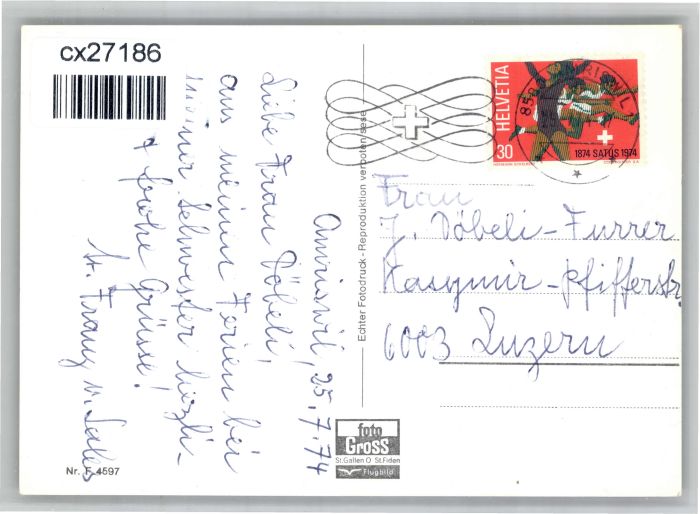 cx27186
Amriswil, 25.7.74
Liebe Frau Döbeli,
aus meinen Ferien bei
meiner Schwester herzli-
frohe Grüsse!
Sr. Franz v. Sales
Nr. F 4597
Echter Fotodruck - Reproduktion verboten/sese
foto
GROSS
St.Gallen O St.Fiden
Flugbild
HELVETIA
30
1874 SATUS 1974
Frau
J. Döbeli-Furrer
Kasymir-Pfifferstr.
6003 Luzern